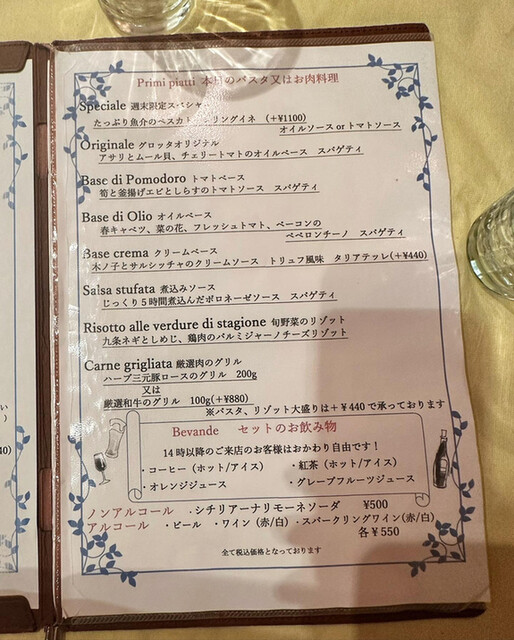 Primi piatti 本日のパスタ又はお肉料理
Speciale 週末限定スペシャ
たっぷり魚介のペスカトーレリングイネ (+¥1100)
オイルソース or トマトソース
Originale グロッタオリジナル
アサリとムール貝、チェリートマトのオイルベース スパゲティ
Base di Pomodoro トマトベース
筍と釜揚げエビとしらすのトマトソース スパゲティ
Base di Olio オイルベース
春キャベツ、菜の花、フレッシュトマト、ベーコンの
ペペロンチーノ スパゲティ
Base crema クリームベース
木ノ子とサルシッチャのクリームソース トリュフ風味 タリアテッレ(+¥440)
Salsa stufata 煮込みソース
じっくり5時間煮込んだボロネーゼソース スパゲティ
Risotto alle verdure di stagione 旬野菜のリゾット
九条ネギとしめじ、鶏肉のパルミジャーノチーズリゾット
Carne grigliata 厳選肉のグリル
ハーブ三元豚ロースのグリル 200g
又は
厳選和牛のグリル 100g(+¥880)
※パスタ、リゾット大盛りは+¥440で承っております
Bevande セットのお飲み物
14時以降のご来店のお客様はおかわり自由です!
・コーヒー(ホット/アイス) ・紅茶(ホット/アイス)
・オレンジジュース ・グレープフルーツジュース
ノンアルコール ・シチリアーナリモーネソーダ ¥500
アルコール ・ビール ・ワイン(赤/白) ・スパークリングワイン(赤/白)
各¥550
全て税込価格となっております
い
)
40)